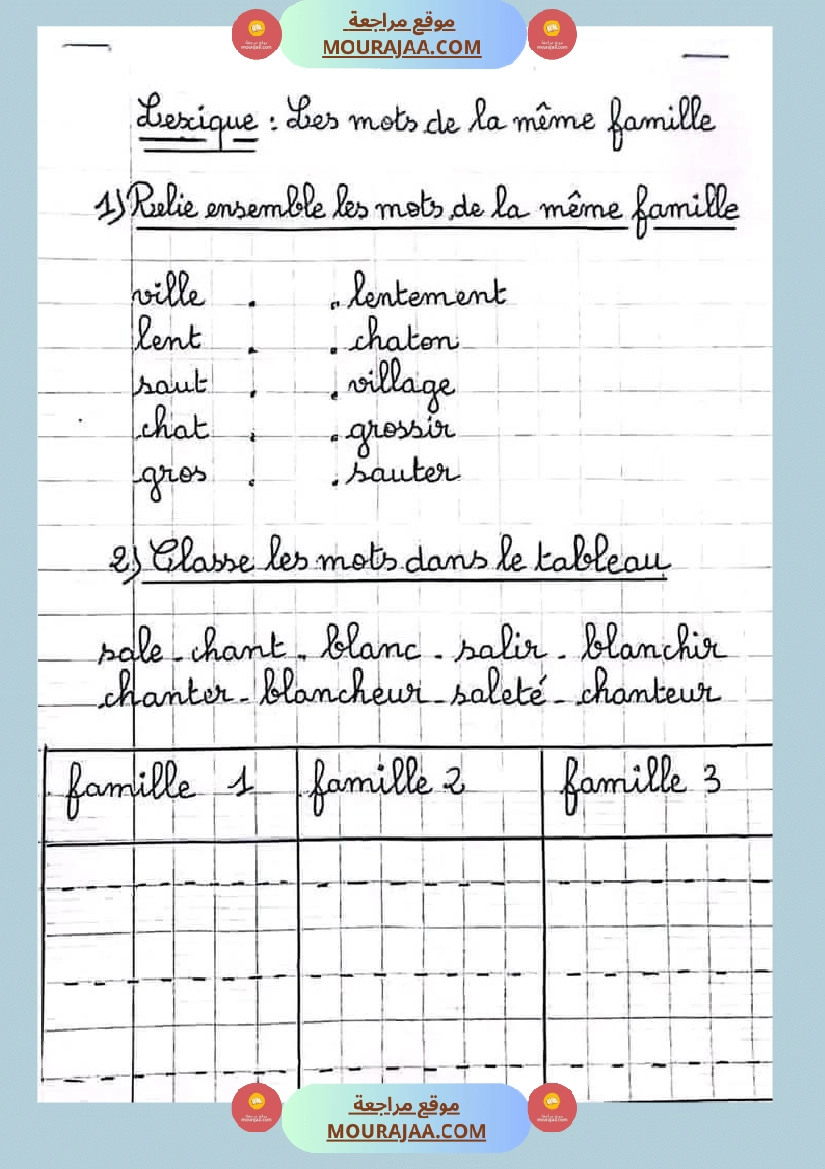 موقع مراجعة
MOURAJAA.COM
Lexique : Les mots de la même famille
1) Relie ensemble les mots de la même famille
ville . . lentement
lent . . chaton
saut . . village
chat . . grossir
gros . . sauter
2) Classe les mots dans le tableau
sale - chant - blanc - salir - blanchir
chanter - blancheur - saleté - chanteur
famille 1 famille 2 famille 3
موقع مراجعة
MOURAJAA.COM